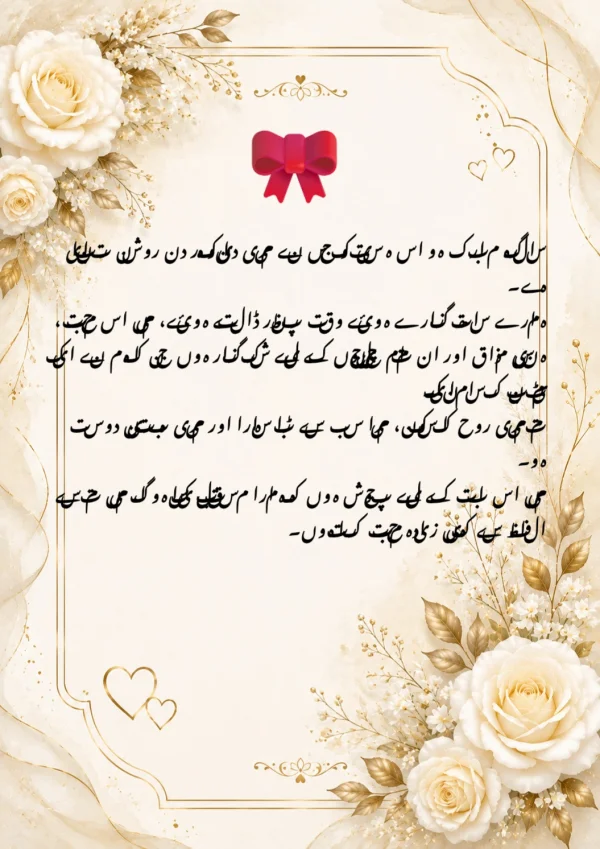 سالگرہ مبارک ہو اس ہستی کو جس نے میری دنیا کو ہر دن روشن تر بنایا
ہے۔
ہمارے ساتھ گزارے ہوئے وقت پر نظر ڈالتے ہوئے، میں اس محبت،
ہنسی مذاق اور ان تمام چیلنجوں کے لیے شکر گزار ہوں جن کا ہم نے ایک
کر سامنا کیا
تم میری روح کا سکون، میرا سب سے بڑا سہارا اور میری دوست
ہو۔
میں اس بات کے لیے پرجوش ہوں کہ ہمارا مستقبل کیسا ہوگا۔ میں تم سے
الفاظ سے کہیں زیادہ محبت کرتا ہوں۔